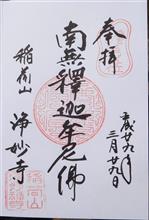 奉拝
南無釋迦牟尼佛
稲荷山
浄妙寺
三月廿九日